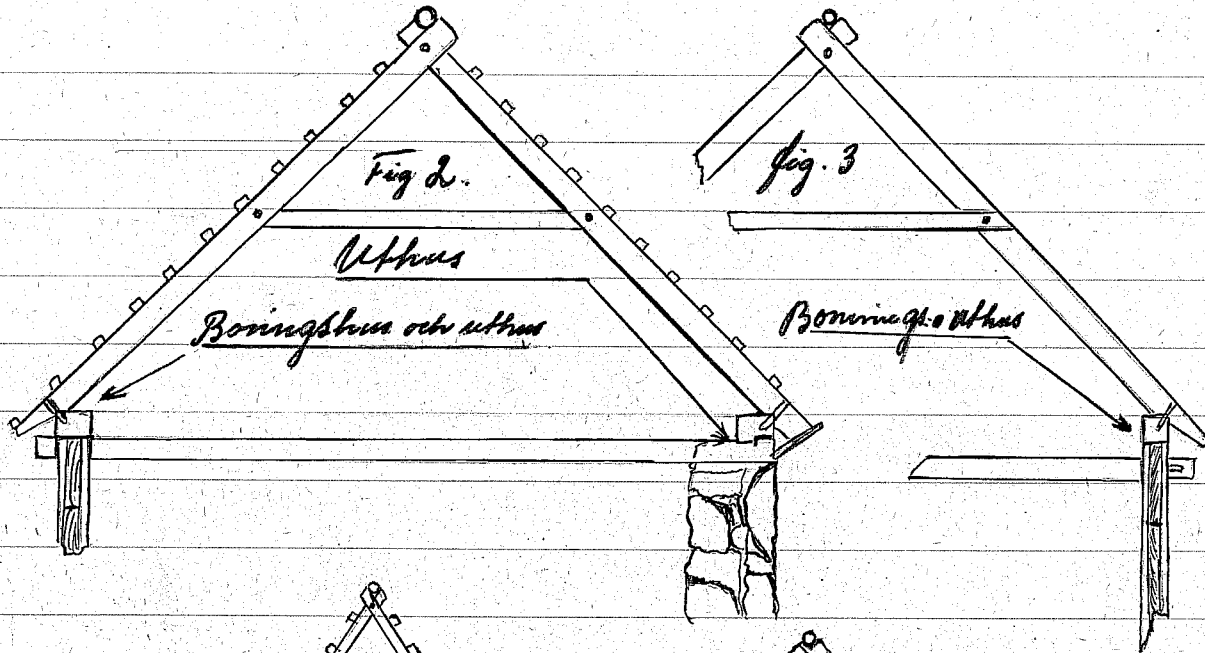 Fig 2.
fig. 3
Uthus
Boningshus och uthus
Bonings- o uthus